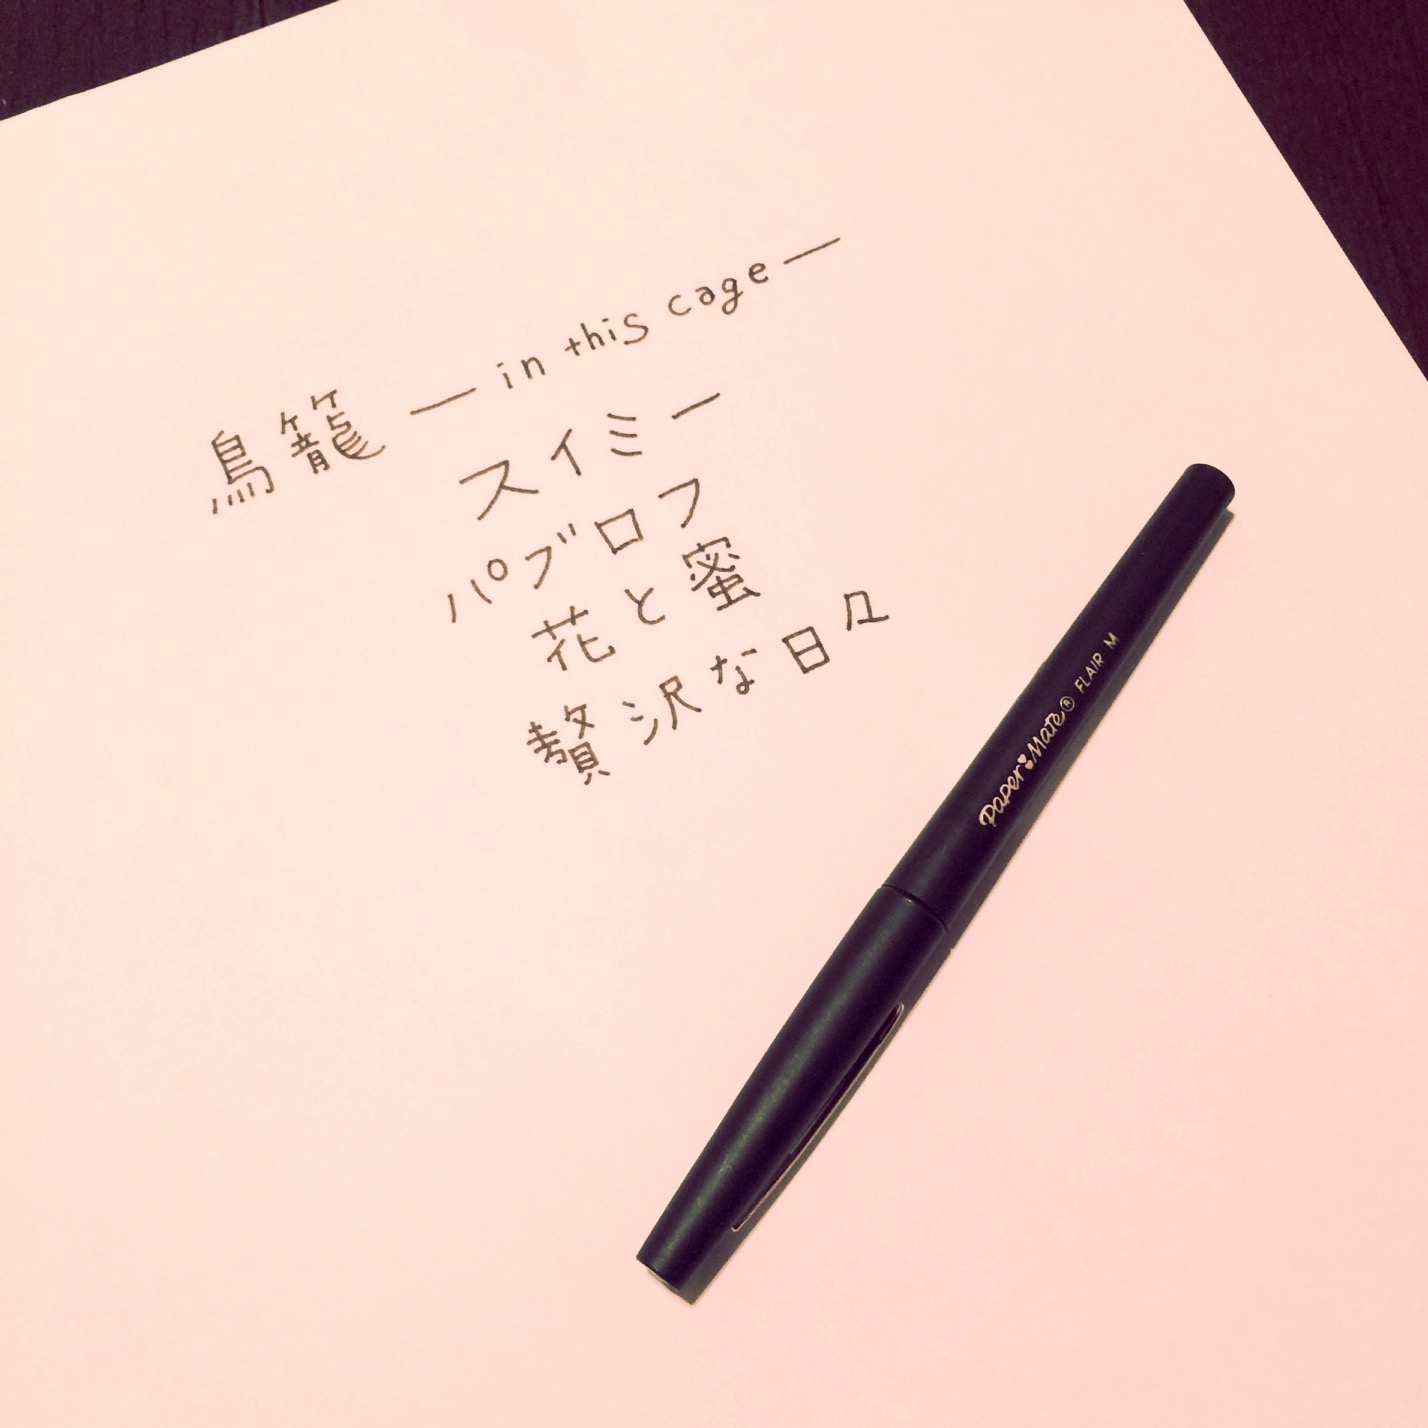 鳥籠 ― in this cage ―
スイミー
パブロフ
花と蜜
贅沢な日々
Paper Mate® FLAIR M